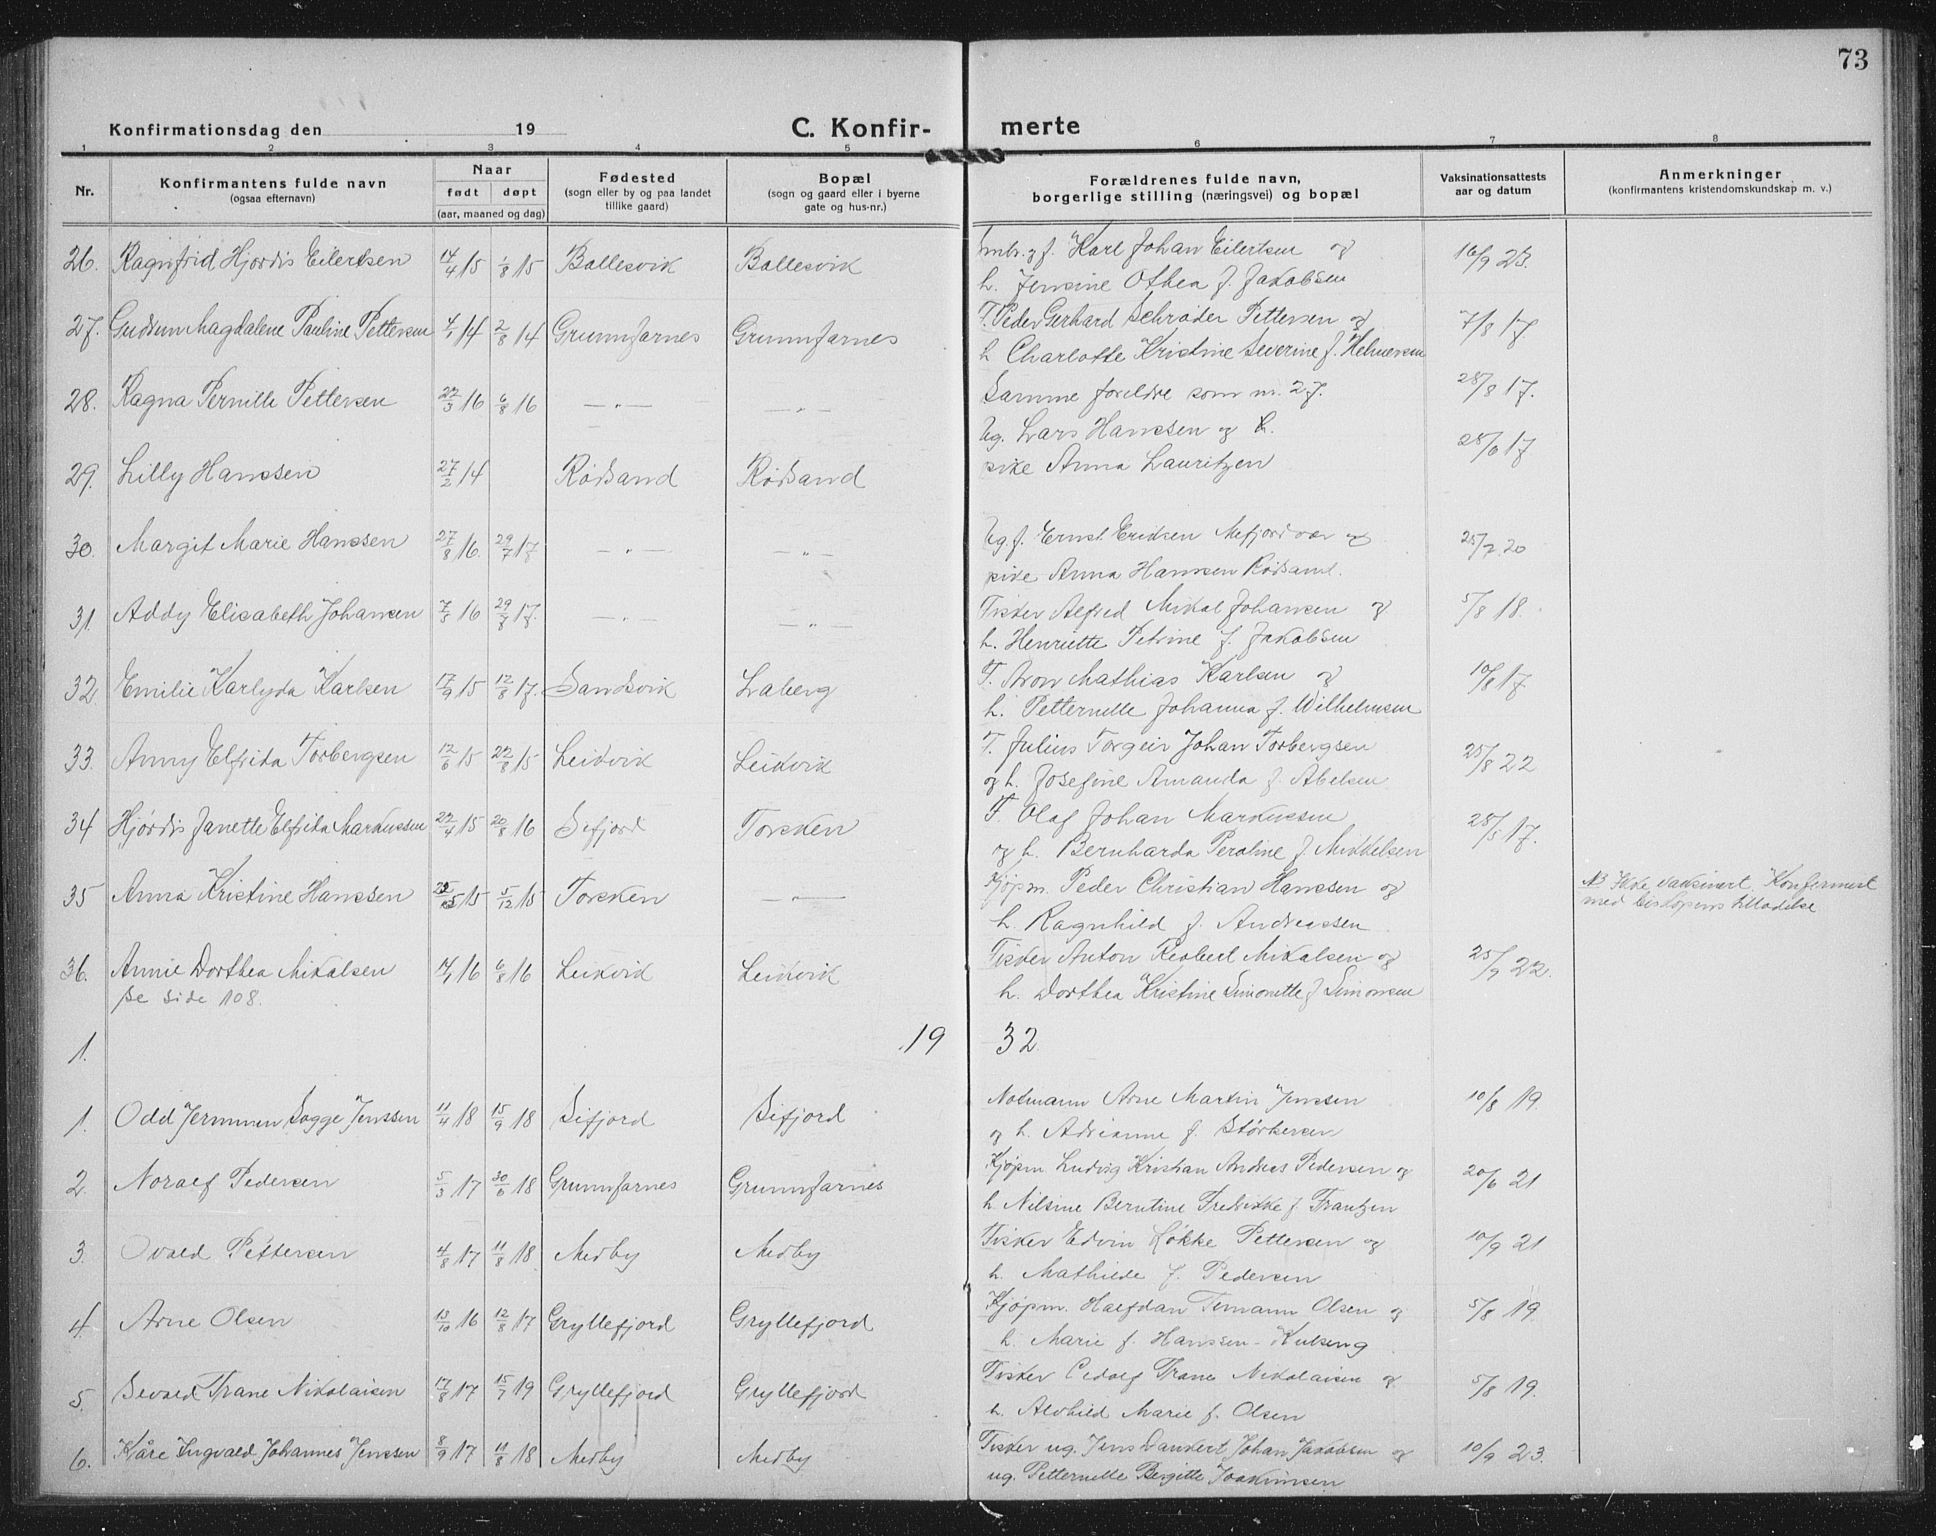 73
Konfirmationsdag den 19 C. Konfirmerte
1 2 3 4 5 6 7 8
Nr. Konfirmantens fulde navn (ogsaa efternavn) Naar født døpt (aar, maaned og dag) Fødested (sogn eller by og paa landet tillike gaard) Bopæl (sogn og gaard eller i byerne gate og hus-nr.) Forældrenes fulde navn, borgerlige stilling (næringsvei) og bopæl Vaksinationsattests aar og datum Anmerkninger (konfirmantens kristendomskundskap m. v.)
26. Ragnfrid Hjordis Eilertsen 14/4 15 1/8 15 Ballesvik Ballesvik Smbr. g. f. Karl Johan Eilertsen og 16/9 23.
h. Jensine Othea f. Jakobsen
27. Gudrun Magdalene Pauline Pettersen 4/1 14 2/8 14 Grunnfarnes Grunnfarnes F. Peder Gerhard Schrøder Pettersen og 7/8 17.
h. Charlotte Kristine Severine f. Helmersen
28. Ragna Pernille Pettersen 22/3 16 6/8 16 —„— —„— Samme foreldre som nr. 27. 28/8 17.
29. Lilly Hanssen 27/2 14 Rødsand Rødsand Ug. Lars Hanssen og 28/8 17
pike Anna Lauritzen
30. Margit Marie Hanssen 27/8 16. 29/7 17. —„— —„— Ug. f. Ernst Eriksen Mefjordvær og 25/7 20
pike Anna Hanssen Rødsand.
31. Addy Elisabeth Johansen 7/5 16 29/8 17. —„— —„— Fisker Alfred Mikal Johansen og 5/8 18.
h. Henriette Petrine f. Jakobsen
32. Emilie Karlyda Karlsen 17/9 15 12/8 17. Sandsvik Laberg F. Aron Mathias Karlsen og 10/8 17
h. Petternelle Johanna f. Wilhelmsen
33. Anny Elfrida Torbergsen 12/6 15 22/8 15 Leikvik Leikvik F. Julius Torgeir Johan Torbergsen 25/8 22
og h. Josefine Amanda f. Abelsen
34 Hjørdis Janette Elfrida Markussen 22/4 15 20/8 16 Sifjord Torsken F. Olaf Johan Markussen 28/5 17.
og h. Bernharda Peroline f. Mikkelsen
35 Anna Kristine Hanssen 15 5/12 15 Torsken —„— Kjøpm. Peder Christian Hanssen og NB Ikke vaksinert. Konfirmert
h. Ragnhild f. Andreassen med biskopens tilladelse
36. Annie Dorthea Mikalsen 16 6/8 16 Leikvik Leikvik Fisker Anton Reobert Mikalsen og 25/9 22.
se side 108. h. Dorthea Kristine Simonette f Simonsen
1. 19 32
1. Odd Jermunn Sogge Jenssen 11/4 18 15/9 18 Sifjord Sifjord Notmann Arne Martin Jenssen 10/8 19.
og h. Adrianne f. Størkersen
2. Noralf Pedersen 5/3 17 30/6 18 Grunnfarnes Grunnfarnes Kjøpm Ludvig Kristian Andreas Pedersen og 20/6 21
h. Nilsine Berntine Fredrikke f Frantzen
3. Ovald Pettersen 4/8 17 11/8 18 Medby Medby Fisker Edvin Løkke Pettersen og 10/9 21
h. Mathilde f. Pedersen
4. Arne Olsen 13/10 16 12/8 17 Gryllefjord Gryllefjord Kjøpm. Halfdan Temann Olsen og 5/8 19.
h. Marie f. Hanssen-Kulseng
5. Sevald Trane Nikolaisen 17/8 17 15/7 19 Gryllefjord Gryllefjord Fisker Cedolf Trane Nikolaisen og 5/8 19.
h. Alvhild Marie f. Olsen
6. Kåre Ingvald Johannes Jenssen 8/9 17 11/8 18 Medby Medby Fisker ug. Jens Dankert Johan Jakobsen og 10/9 23.
ug. Petternelle Bergitte Joakimsen